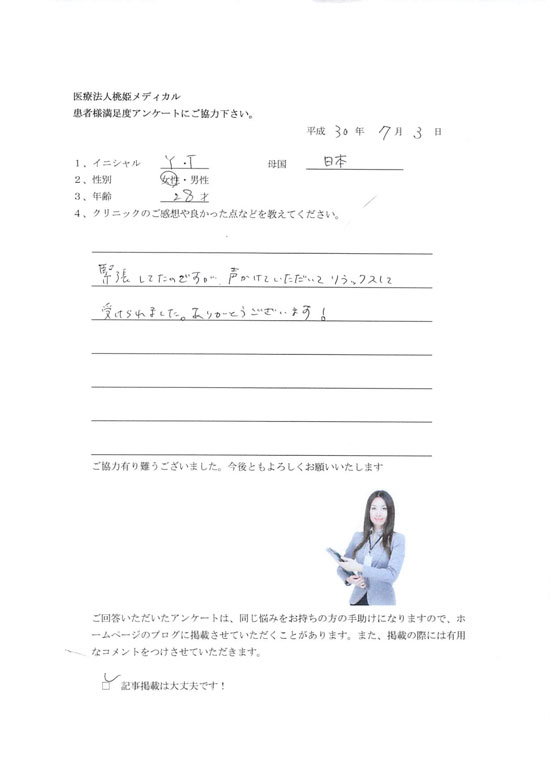 医療法人桃姫メディカル
患者様満足度アンケートにご協力下さい。
平成 30 年 7 月 3 日
1、イニシャル Y・T 母国 日本
2、性別 女性・男性
3、年齢 28才
4、クリニックのご感想や良かった点などを教えてください。
緊張してたのですが、声かけていただいてリラックスして
受けられました。ありがとうございます!
ご協力有り難うございました。今後ともよろしくお願いいたします
ご回答いただいたアンケートは、同じ悩みをお持ちの方の手助けになりますので、ホ
ームページのブログに掲載させていただくことがあります。また、掲載の際には有用
なコメントをつけさせていただきます。
□ 記事掲載は大丈夫です!